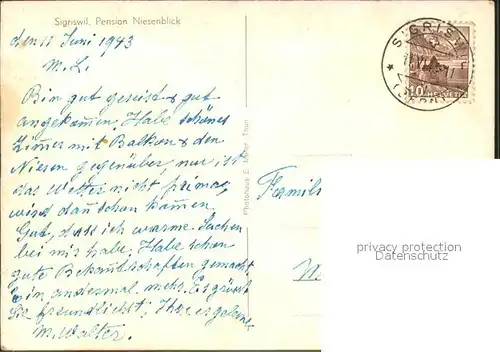 Sigriswil, Pension Niesenblick
den 11 Juni 1943
M. L.
Bin gut gereist & gut
angekommen, Habe schönes
Zimmer mit Balkon & den
Niesen gegenüber, nur ist
das Wetter nicht prima,
wird dann schon kommen
Gut, dass ich warme Sachen
bei mir habe, Habe schon
gute Bekanntschaften gemacht
Ein andermal mehr. Es grüsst
Sie freundlichst, Ihre ergebene
M. Walter.
Photohaus E. Thun
SIGRISWIL
10
HELVETIA
Famil
privacy protection
Datenschutz